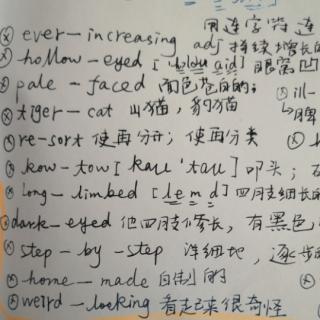 用连字符连
ever-increasing adj 持续增长的
hollow-eyed [holou aid] 眼窝凹
pale-faced 面色苍白的;
ill-
tiger-cat 山猫, 豹猫
↳脾
re-sort 使再分开; 使再分类
kow-tow [kau'tau] 叩头;
long-limbed [lemd] 四肢细长的
dark-eyed 他四肢修长, 有黑色
step-by-step 详细地, 逐步
home-made 自制的
weird-looking 看起来很奇怪